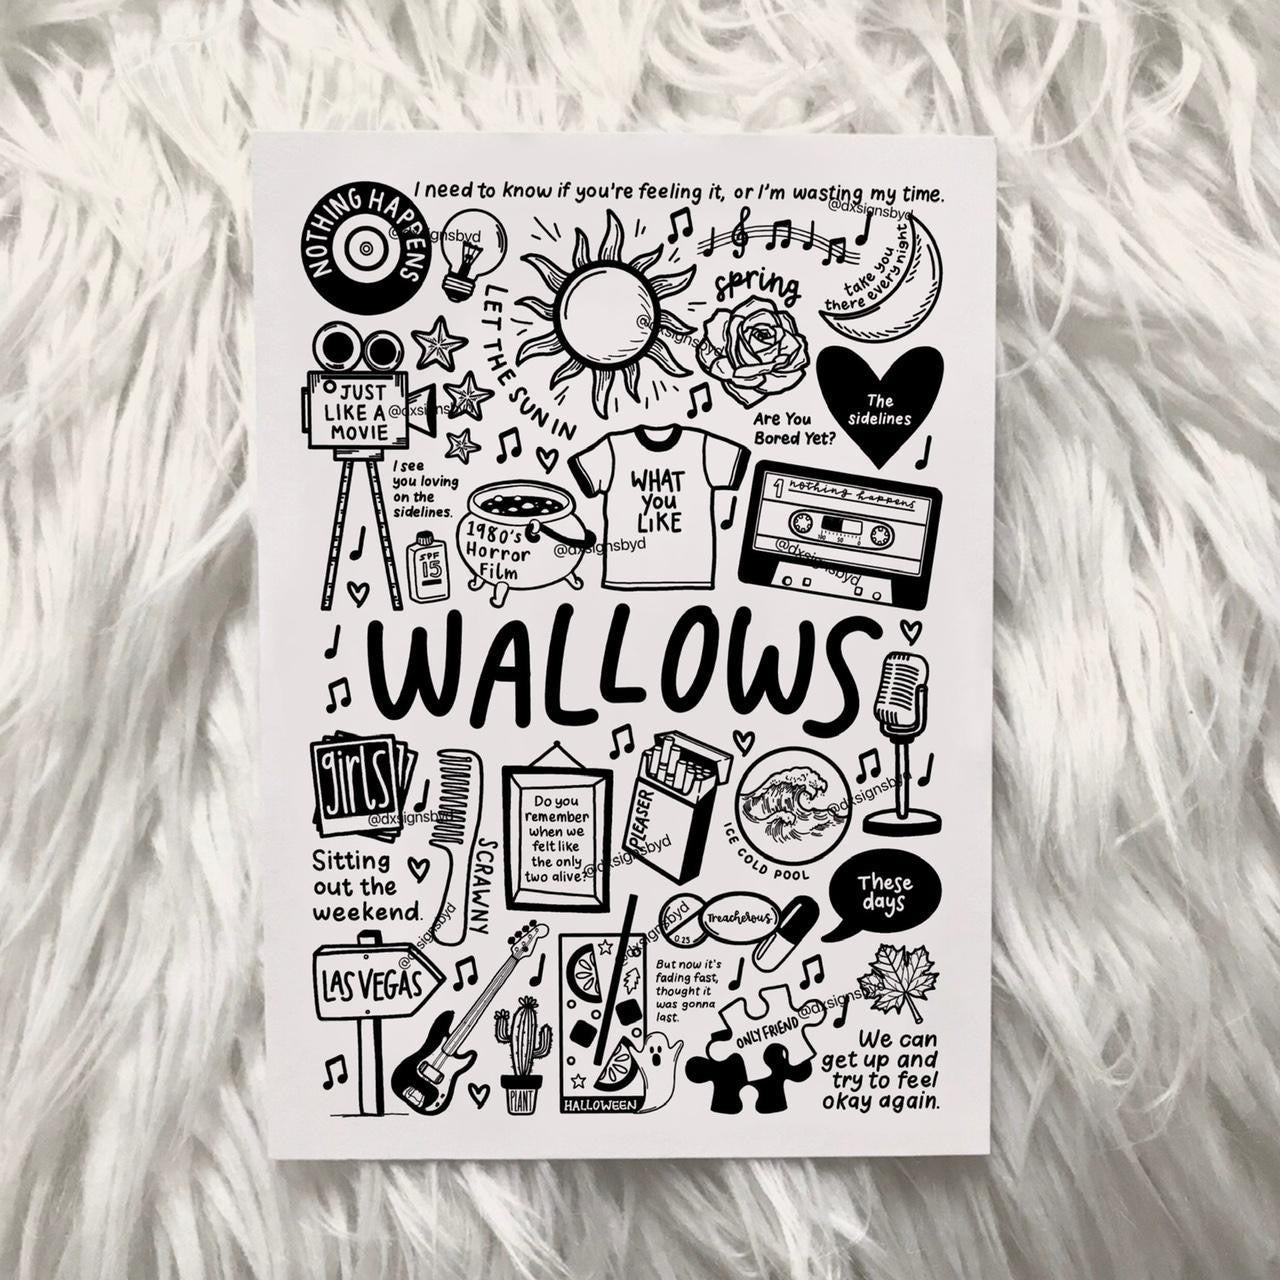 NOTHING HAPPENS
I need to know if you're feeling it, or I'm wasting my time.
@dxsignsbyd
@dxsignsbyd
take you
there every night
spring
LET THE SUN IN
@dxsignsbyd
JUST
LIKE A
MOVIE
@dxsignsbyd
The
sidelines
Are You
Bored Yet?
I see
you loving
on the
sidelines.
SPF
15
1980's
Horror
Film
@dxsignsbyd
WHAT
YOU
LIKE
1 nothing happens
100 50 0
@dxsignsbyd
WALLOWS
girls
@dxsignsbyd
SCRAWNY
Do you
remember
when we
felt like
the only
two alive?
@dxsignsbyd
PLEASER
ICE COLD POOL
@dxsignsbyd
Sitting
out the
weekend.
@dxsignsbyd
These
days
0.25
Treacherous
@dxsignsbyd
LAS VEGAS
But now it's
fading fast,
thought it
was gonna
last.
ONLY FRIEND
@dxsignsbyd
PLANT
HALLOWEEN
We can
get up and
try to feel
okay again.